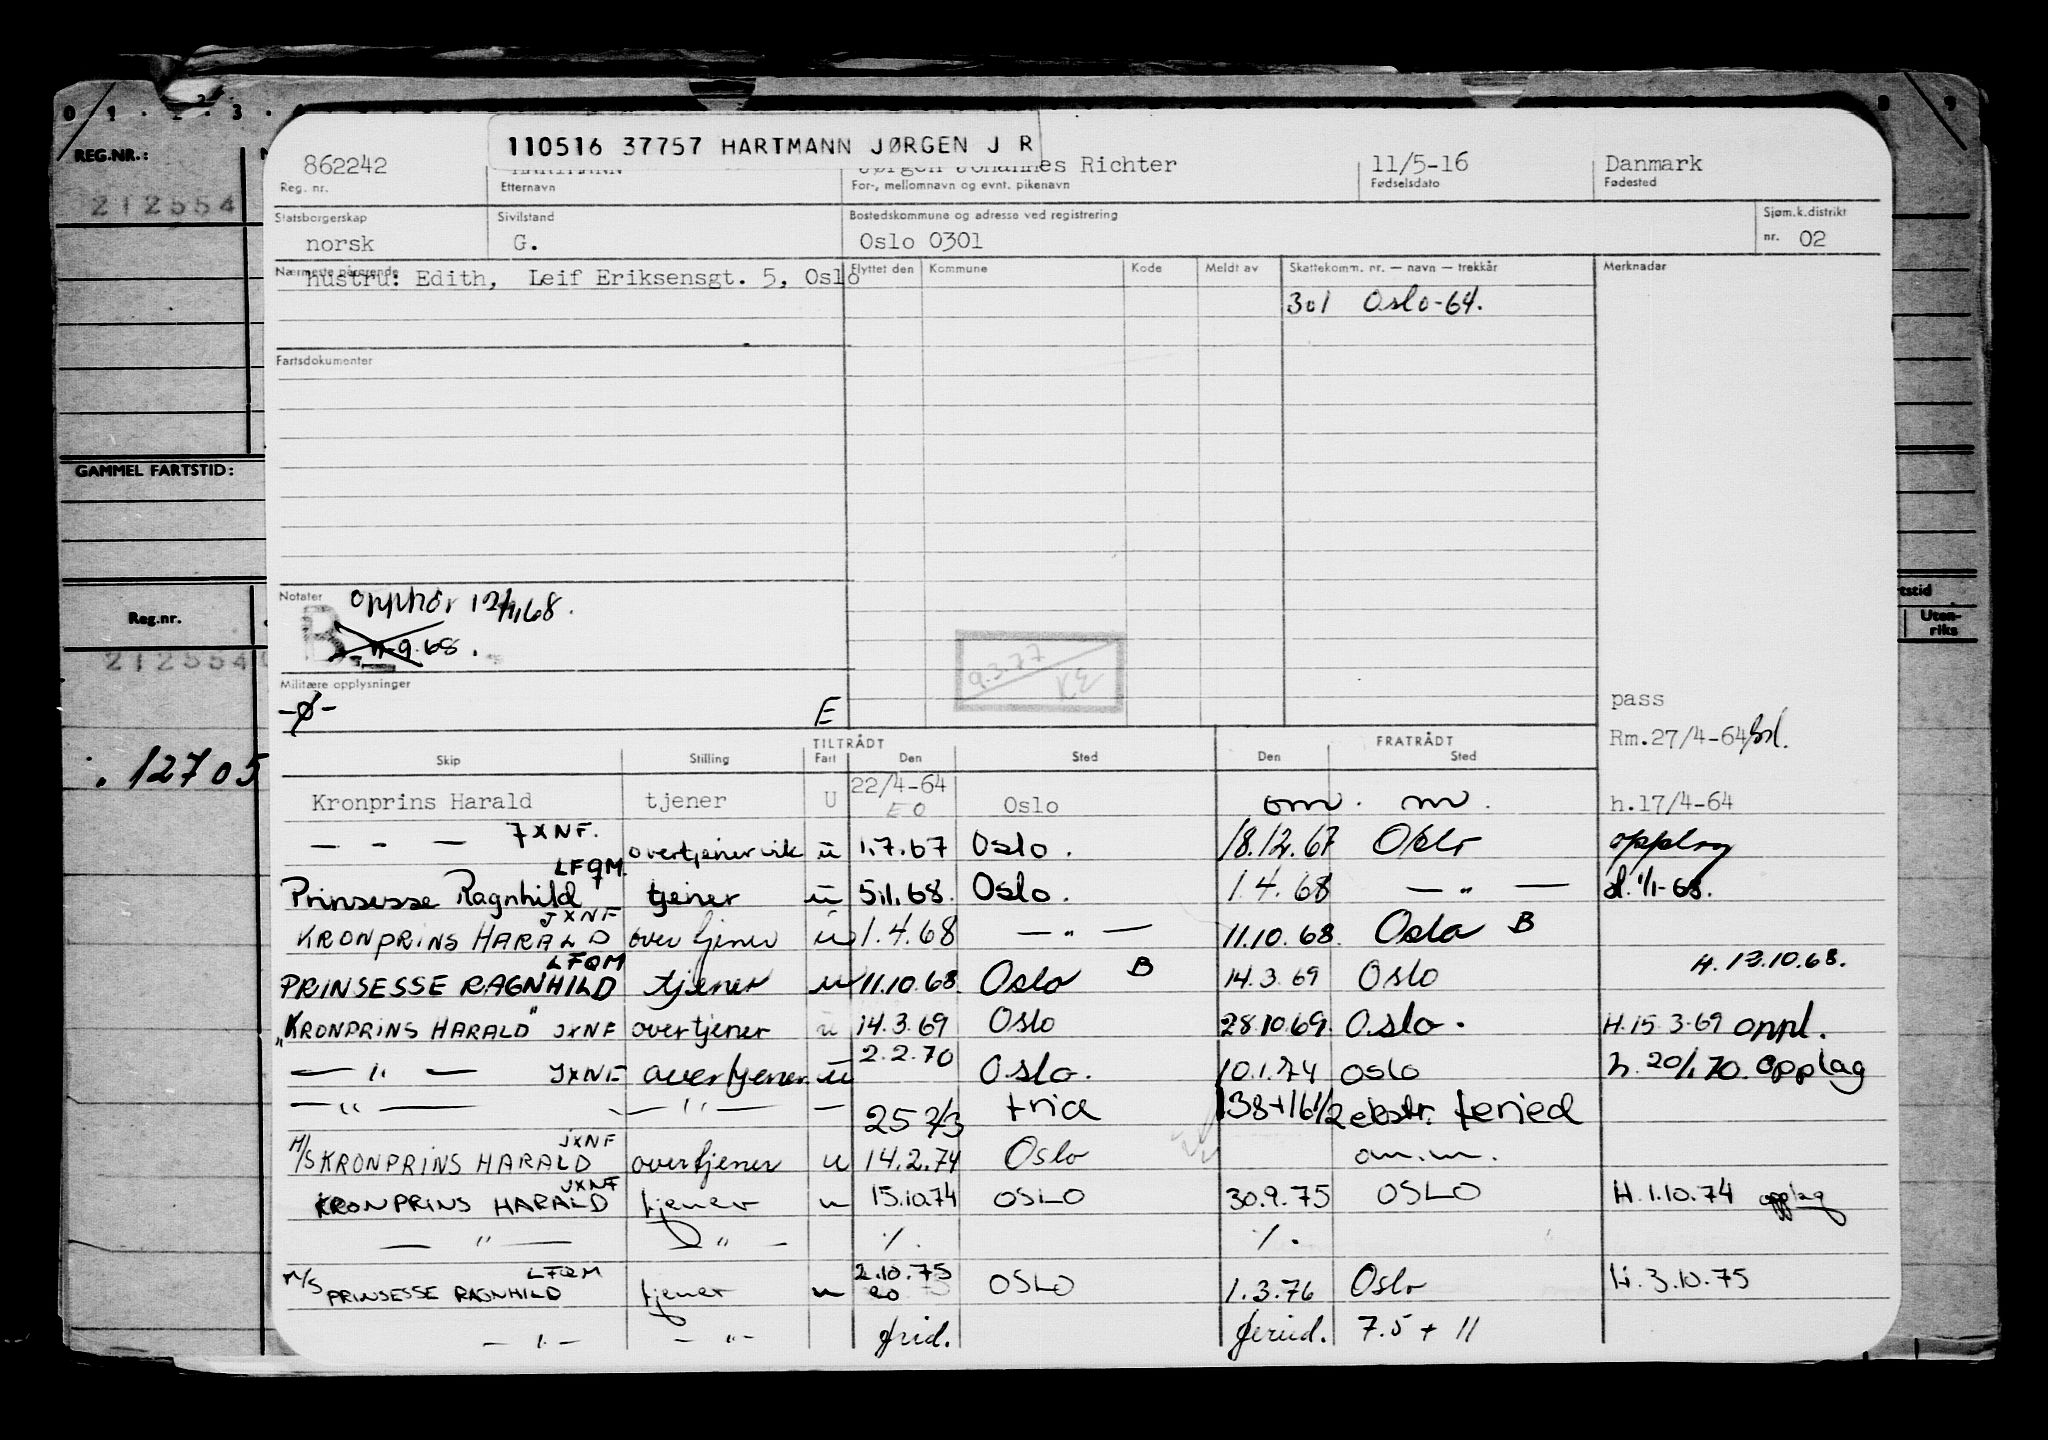 0 1 . 2 . 3 . 8 9
REG.NR.:
212554
GAMMEL FARTSTID:
Reg.nr.
212554
. 12705
rtstid
Uten-
riks
110516 37757 HARTMANN JØRGEN J R
862242 HARTMANN Jørgen Johannes Richter 11/5-16 Danmark
Reg. nr. Etternavn For-, mellomnavn og evnt. pikenavn Fødselsdato Fødested
Statsborgerskap Sivilstand Bostedskommune og adresse ved registrering Sjøm.k.distrikt
norsk G. Oslo 0301 nr. 02
Nærmeste pårørende Flyttet den Kommune Kode Meldt av Skattekomm. nr. — navn — trekkår Merknader
hustru: Edith, Leif Eriksensgt. 5, Oslo
301 Oslo-64.
Fartsdokumenter
Notater opphør 12/11 68.
B 11-9.68.
9.3.77 KE
Militære opplysninger
-ø- E
pass
Rm.27/4-64
TILTRÅDT FRATRÅDT
Skip Stilling Fart Den Sted Den Sted
Kronprins Harald tjener U 22/4-64 EO Oslo om. m. h.17/4-64
— - — JXNF. overtjener vik u 1.7.67 Oslo. 18.12.67 Oslo opplag
Prinsesse Ragnhild LFQM. tjener u 5.1.68. Oslo. 1.4.68 — " — d. 1/1-68.
KRONPRINS HARALD JXNF overtjener u 1.4.68 — " — 11.10.68. Oslo B
PRINSESSE RAGNHILD LFQM tjener u 11.10.68. Oslo B 14.3.69 Oslo H. 12.10.68.
"KRONPRINS HARALD" JXNF overtjener u 14.3.69 Oslo 28.10.69. Oslo. H.15.3-69 oppl.
— " — JXNF overtjener u 2.2.70 Oslo. 10.1.74 oslo h. 20/1.70. opplag
— " — — " — — 25 2/3 frid 138+16 1/2 ekstr. feried
M/S KRONPRINS HARALD JXNF overtjener u 14.2.74 Oslo om.m.
KRONPRINS HARALD JXNF tjener u 15.10.74 OSLO 30.9.75 OSLO H. 1.10.74 opplag
— " — — " — /. /.
M/S PRINSESSE RAGNHILD LFQM tjener u 2.10.75 eo OSLO 1.3.76 Oslo H. 3.10.75
— " — — " — frid. feried. 7.5 + 11